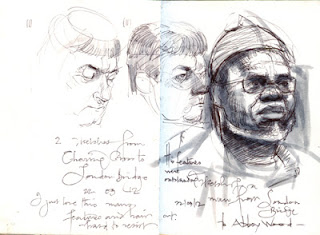 (1)
(11)
2 sketches from
Charing Cross to
London Bridge
22 03 12
I just love this man's
features and hair
hard to resist
features
were
outstanding
man from London
Bridge
to Abbey Wood